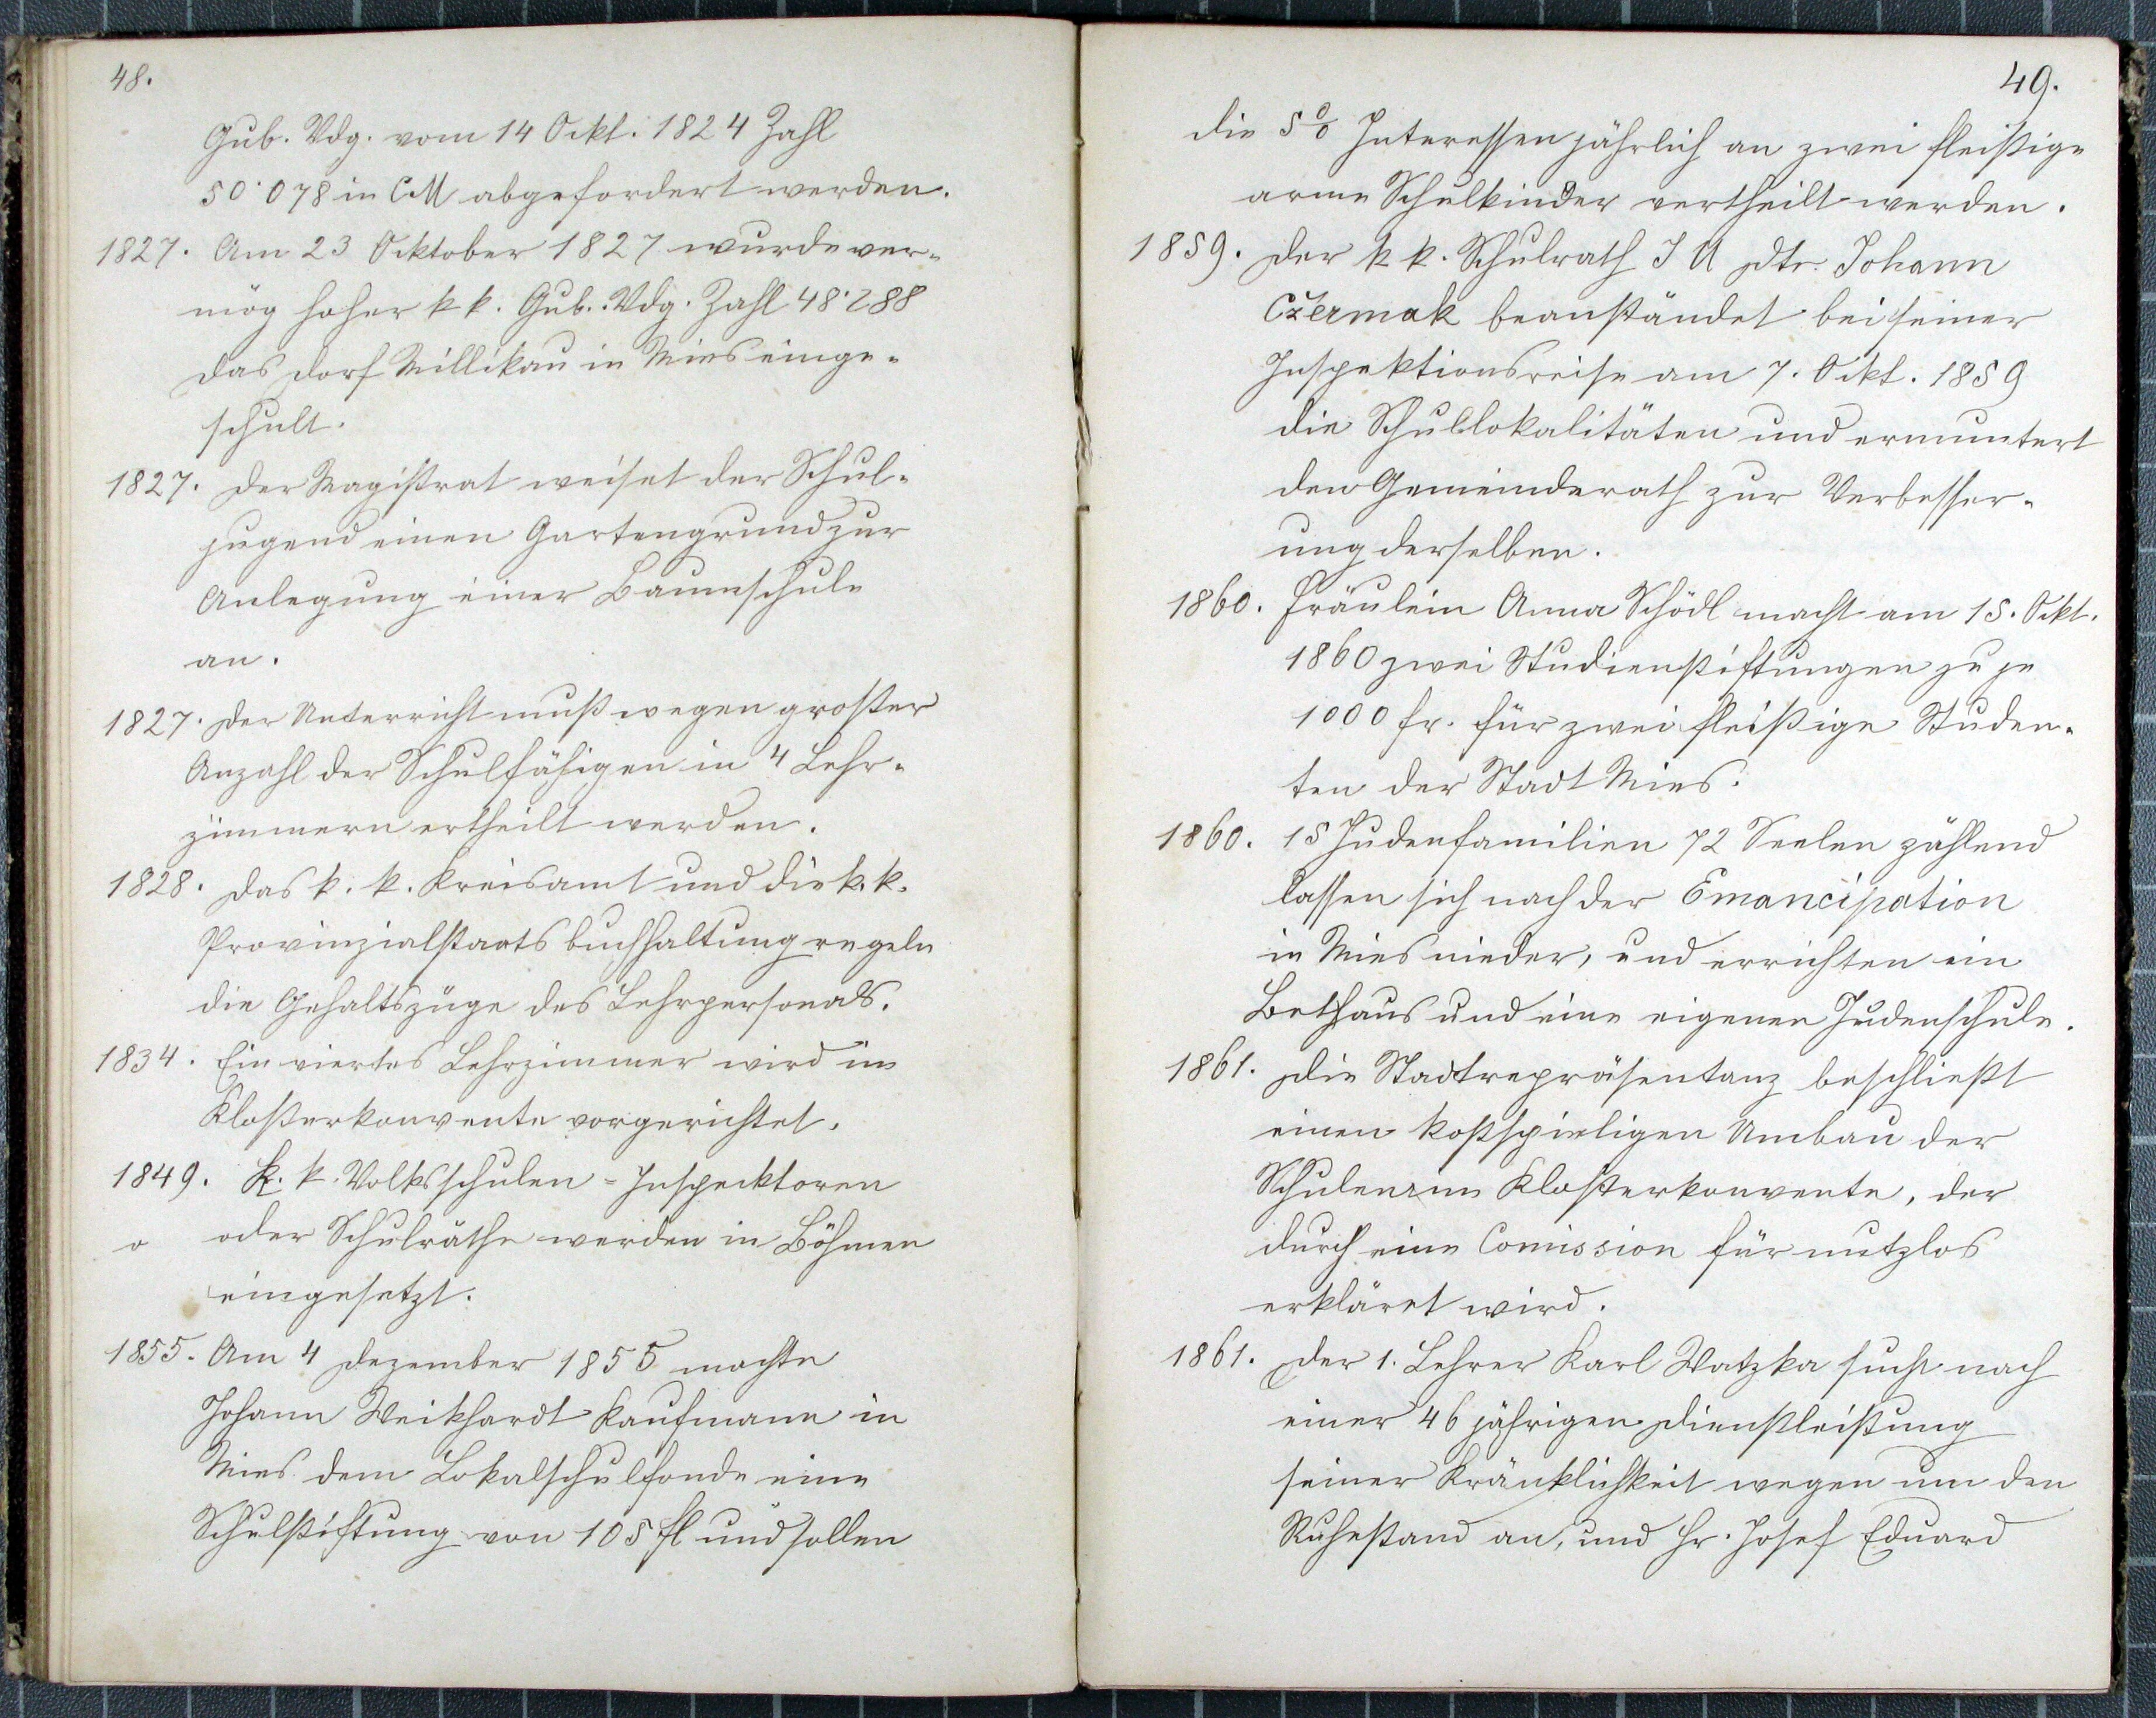 48.
Gub. Vdg. vom 14 Okt. 1824 Zahl
50·078 in CM abgefordert werden.
1827. Am 23 Oktober 1827 wurde ver-
mög hoher k k. Gub. Vdg. Zahl 48·288
das Dorf Millikau in Mies einge-
schult.
1827. Der Magistrat weiset der Schul-
jugend einen Gartengrund zur
Anlegung einer Baumschule
an.
1827. Der Unterricht muß wegen großer
Anzahl der Schulfähigen in 4 Lehr-
zimmern ertheilt werden.
1828. Das k. k. Kreisamt und die k. k.
Provinzialstaatsbuchhaltung regeln
die Gehaltszüge des Lehrpersonals.
1834. Ein viertes Lehrzimmer wird im
Klosterkonvente vorgerichtet.
1849. K. k. Volksschulen-Inspecktoren
o oder Schulräthe werden in Böhmen
eingesetzt.
1855. Am 4 Dezember 1855 machte
Johann Weikhardt Kaufmann in
Mies dem Lokalschulfonde eine
Schulstiftung von 105 fl und sollen
49.
die 5% Interessen jährlich an zwei fleißige
arme Schulkinder vertheilt werden.
1859. Der k k. Schulrath J U Dtr. Johann
Cžermak beanständet bei seiner
Inspektionsreise am 7. Okt. 1859
die Schullokalitäten und ermuntert
den Gemeinderath zur Verbesser-
ung derselben.
1860. Fräulein Anna Schödl macht am 15. Okt.
1860 zwei Studienstiftungen zu je
1000 fr. für zwei fleißige Studen-
ten der Stadt Mies.
1860. 15 Judenfamilien 72 Seelen zählend
lassen sich nach der Emancipation
in Mies nieder, und errichten ein
Bethaus und eine eigenen Judenschule.
1861. Die Stadtrepräsentanz beschließt
einen kostspieligen Umbau der
Schulen im Klosterkonvente, der
durch eine Comission für nutzlos
erkläret wird.
1861. Der 1. Lehrer Karl Watzka sucht nach
einer 46 jährigen Dienstleistung
seiner Kränklichkeit wegen um den
Ruhestand an, und Hr. Josef Eduard